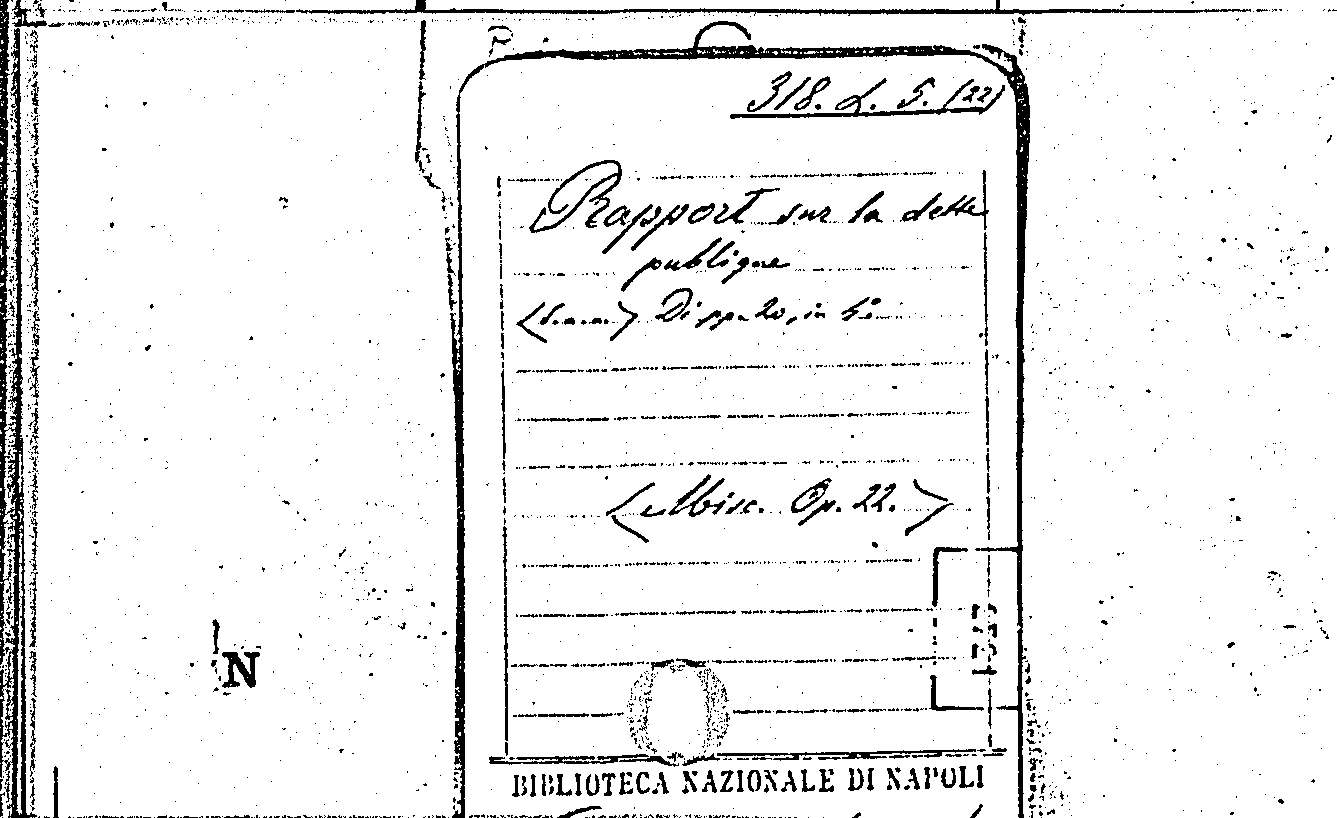 R
318. L. 5. (22)
Rapport sur la dette
publique
<s.n.n.> Di pp. 20, in 4°
<Misc. Op. 22.>
N
BIBLIOTECA NAZIONALE DI NAPOLI